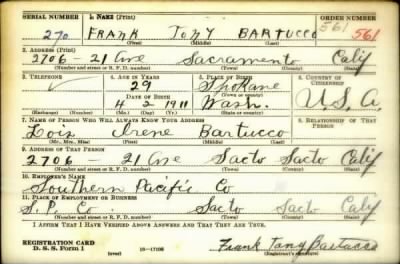 SERIAL NUMBER 1. NAME (Print) ORDER NUMBER
270 FRANK TONY BARTUCCO 561 561
(First) (Middle) (Last)
2. ADDRESS (Print)
2706 - 21 Ave Sacramento Calif
(Number and street or R. F. D. number) (Town) (County) (State)
3. TELEPHONE 4. AGE IN YEARS 5. PLACE OF BIRTH 6. COUNTRY OF CITIZENSHIP
29 Spokane
DATE OF BIRTH (Town or county)
4 2 1911 Wash. U.S.A.
(Exchange) (Number) (Mo.) (Day) (Yr.) (State or country)
7. NAME OF PERSON WHO WILL ALWAYS KNOW YOUR ADDRESS 8. RELATIONSHIP OF THAT PERSON
Lois Irene Bartucco
(Mr., Mrs., Miss) (First) (Middle) (Last)
9. ADDRESS OF THAT PERSON
2706 - 21 Ave Sacto Sacto Calif
(Number and street or R. F. D. number) (Town) (County) (State)
10. EMPLOYER'S NAME
Southern Pacific Co
11. PLACE OF EMPLOYMENT OR BUSINESS
S.P. Co. Sacto Sacto Calif
(Number and street or R. F. D. number) (Town) (County) (State)
I AFFIRM THAT I HAVE VERIFIED ABOVE ANSWERS AND THAT THEY ARE TRUE.
REGISTRATION CARD
D. S. S. FORM 1 (over) 16-17105 Frank Tony Bartucco